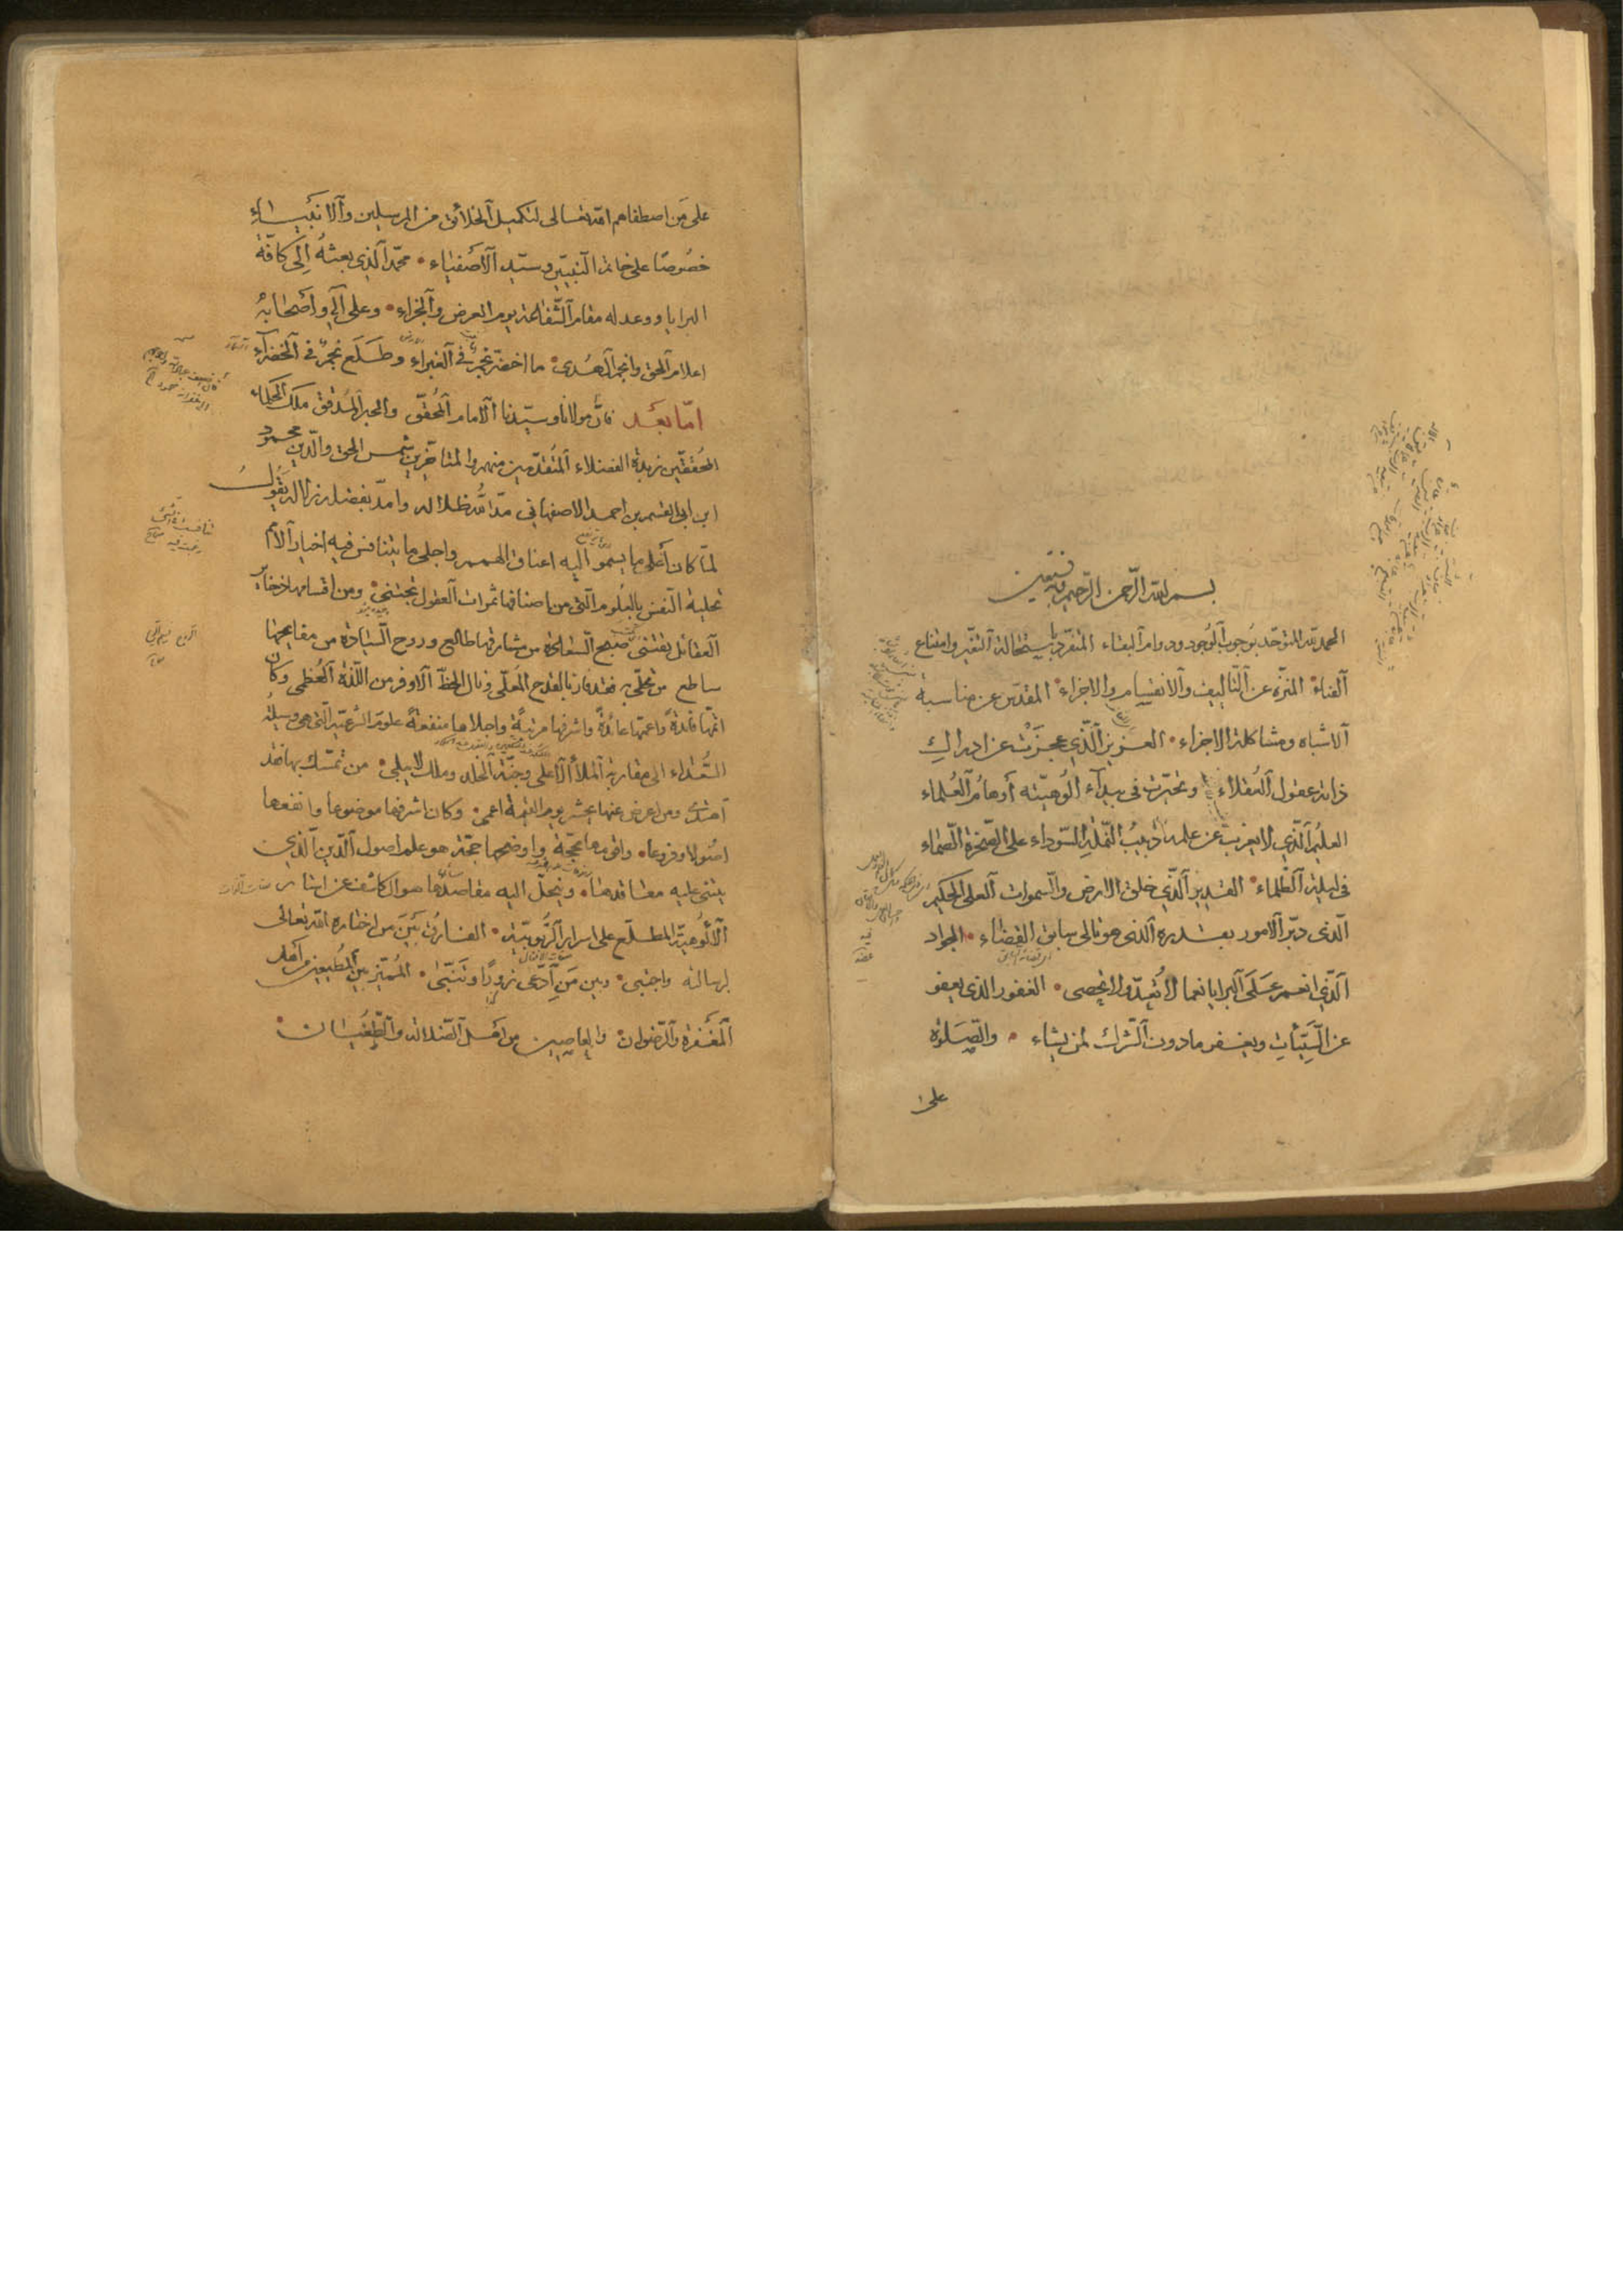 بسم الله الرحمن الرحيم وبه نستعين
الحمد لله المتوحد بوجوب الوجود ودوام البقاء المتفرد باستحالة التغير وامتناع
الفناء المنزه عن التأليف والانقسام والاجزاء المقدس عن مناسبة
الاشباه ومشاكلة الاجزاء العزيز الذي عجزت عن ادراك
ذاته عقول العقلاء وتحيرت في بيداء الوهيته أوهام العلماء
العليم الذي لا يعزب عن علمه دبيب النملة السوداء على الصخرة الصماء
في ليلة الظلماء القدير الذي خلق الارض والسموات العلى الحكيم
الذي دبر الامور بقدرة الذي هو تالي سابق القضاء الجواد
الذي انعم على البرايا نعما لا تعد ولا تحصى الغفور الذي يعفو
عن السيئات ويغفر مادون الشرك لمن يشاء والصلوة
على
على من اصطفاهم الله تعالى لتكميل الخلائق من المرسلين والانبياء
خصوصا على خاتم النبيين وسيد الاصفياء محمد الذي بعثه إلى كافة
البرايا ووعد له مقام الشفاعة يوم العرض والجزاء وعلى آله وأصحابه
اعلام الحق وانجم الهدى ما اخضر نجم في الغبراء وطلع نجم في الخضراء
اما بعد فان مولانا وسيدنا الامام المحقق والحبر المدقق ملك الحكماء
المحققين زبدة الفضلاء المتقدمين منهم والمتاخرين شمس الحق والدين محمود
ابن ابي القسم بن احمد الاصفهاني مد الله ظلاله وامد بفضله نواله يقول
لما كان أعلى ما يسموا اليه اعناق الهمم واجلى ما يتنافس فيه اخيار الامم
تحلية النفس بالعلوم التي من اصنافها ثمرات العقول تجتنى ومن اقسامها ذخاير
العقائل تقتنى صبح السعادة من مشارقها طالع وروح السيادة من مفايحها
ساطع من تحلى به فقد فاز بالقدح المعلى ونال الحظ الاوفر من اللذة العظمى وكان
اتمها فائدة واعمها عائدة واشرفها مرتبة واجلاها منفعة علوم الشرعية التي هي وسيلة
السعداء الى مقاربة الملأ الاعلى وجنة الخلد وملك لا يبلى من تمسك بها فقد
اهتدى ومن اعرض عنها يحشر يوم القيمة اعمى وكان اشرفها موضوعا وانفعها
اصولا وفروعا واقومها حجة واوضحها محجة هو علم اصول الدين الذي
يبتنى عليه معاقدها وينحل اليه مقاصدها هو الكاشف عن استار
الالوهية المطلع على اسرار الربوبية الفارق بين من اختاره الله تعالى
لرسالته واجتبى وبين من ادعى زورا وتنبى المميز بين المطيعين من اهل
المغفرة والرضوان والعاصين من اهل الضلالة والطغيان